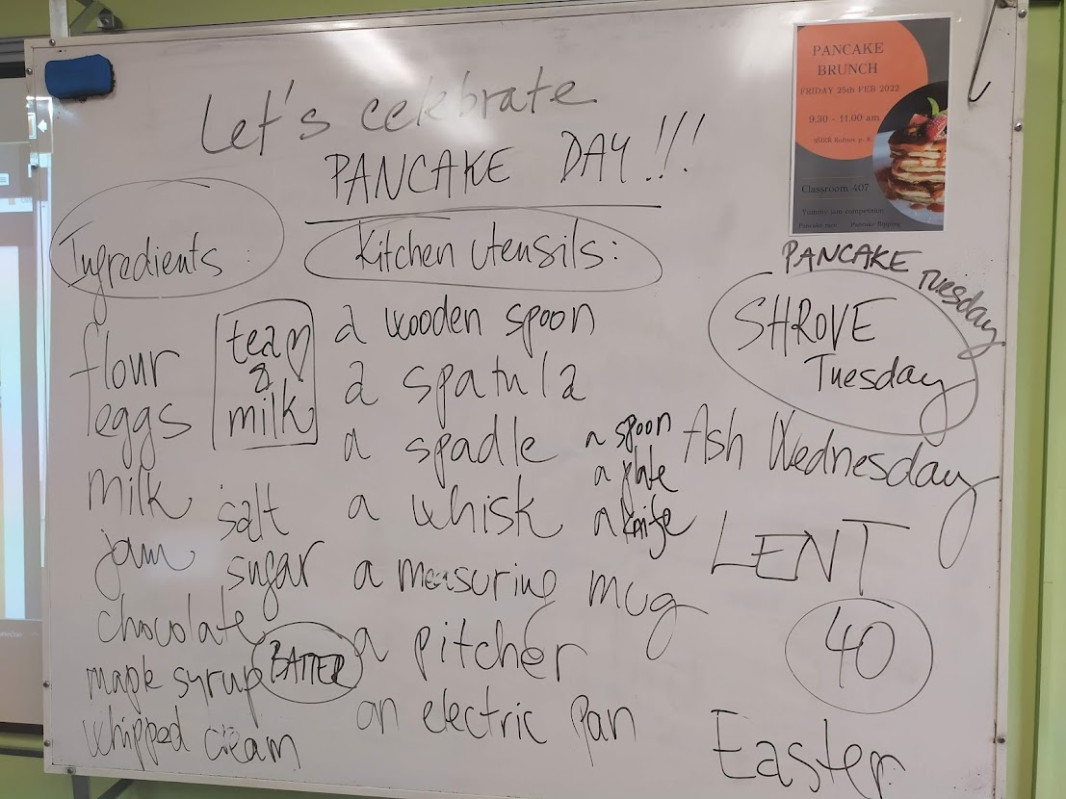 Let's celebrate
PANCAKE DAY!!!
PANCAKE
BRUNCH
FRIDAY 25th FEB 2022
9.30 - 11.00 am
Classroom 407
Ingredients:
flour
eggs
milk
jam
chocolate
maple syrup
whipped cream
tea
&
milk
salt
sugar
BATTER
Kitchen utensils:
a wooden spoon
a spatula
a spadle
a whisk
a measuring mug
a pitcher
an electric pan
a spoon
a plate
a knife
PANCAKE Tuesday
SHROVE
Tuesday
Ash Wednesday
LENT
40
Easter